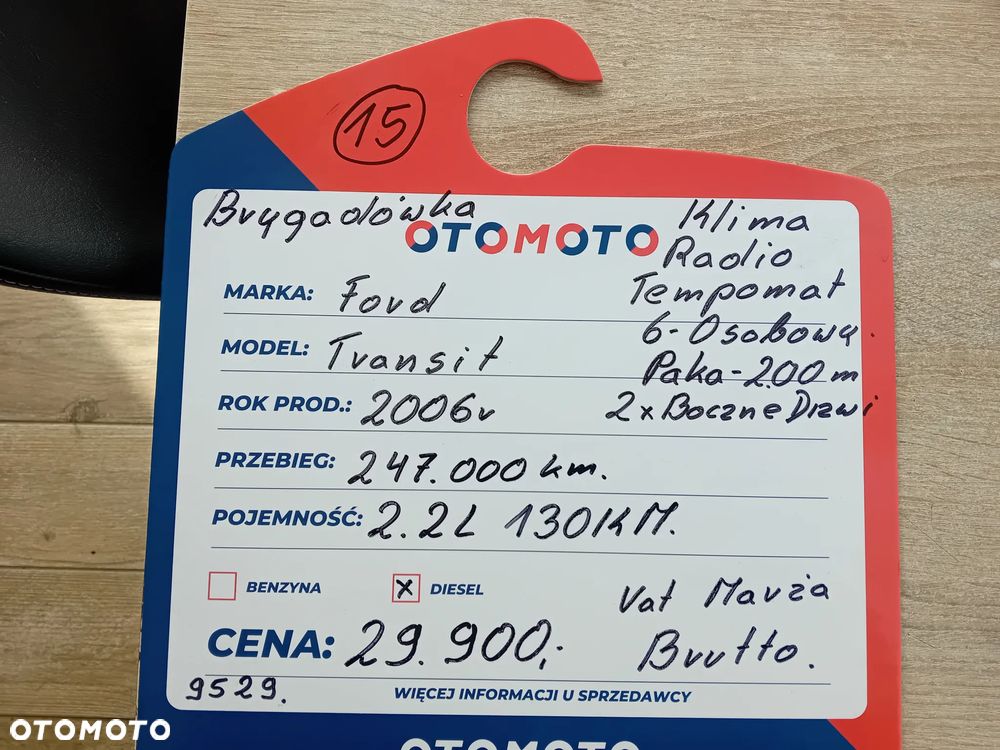 15
Brygadówka
OTOMOTO
Klima
Radio
MARKA: Ford
Tempomat
6-Osobowy.
MODEL: Transit
Paka-2.00m
ROK PROD.: 2006r
2xBoczneDrzwi
PRZEBIEG: 247.000 km.
POJEMNOŚĆ: 2.2L 130KM.
BENZYNA x DIESEL
Vat Marża
CENA: 29.900,-
Brutto.
9529.
WIĘCEJ INFORMACJI U SPRZEDAWCY
OTOMOTO
OTOMOTO